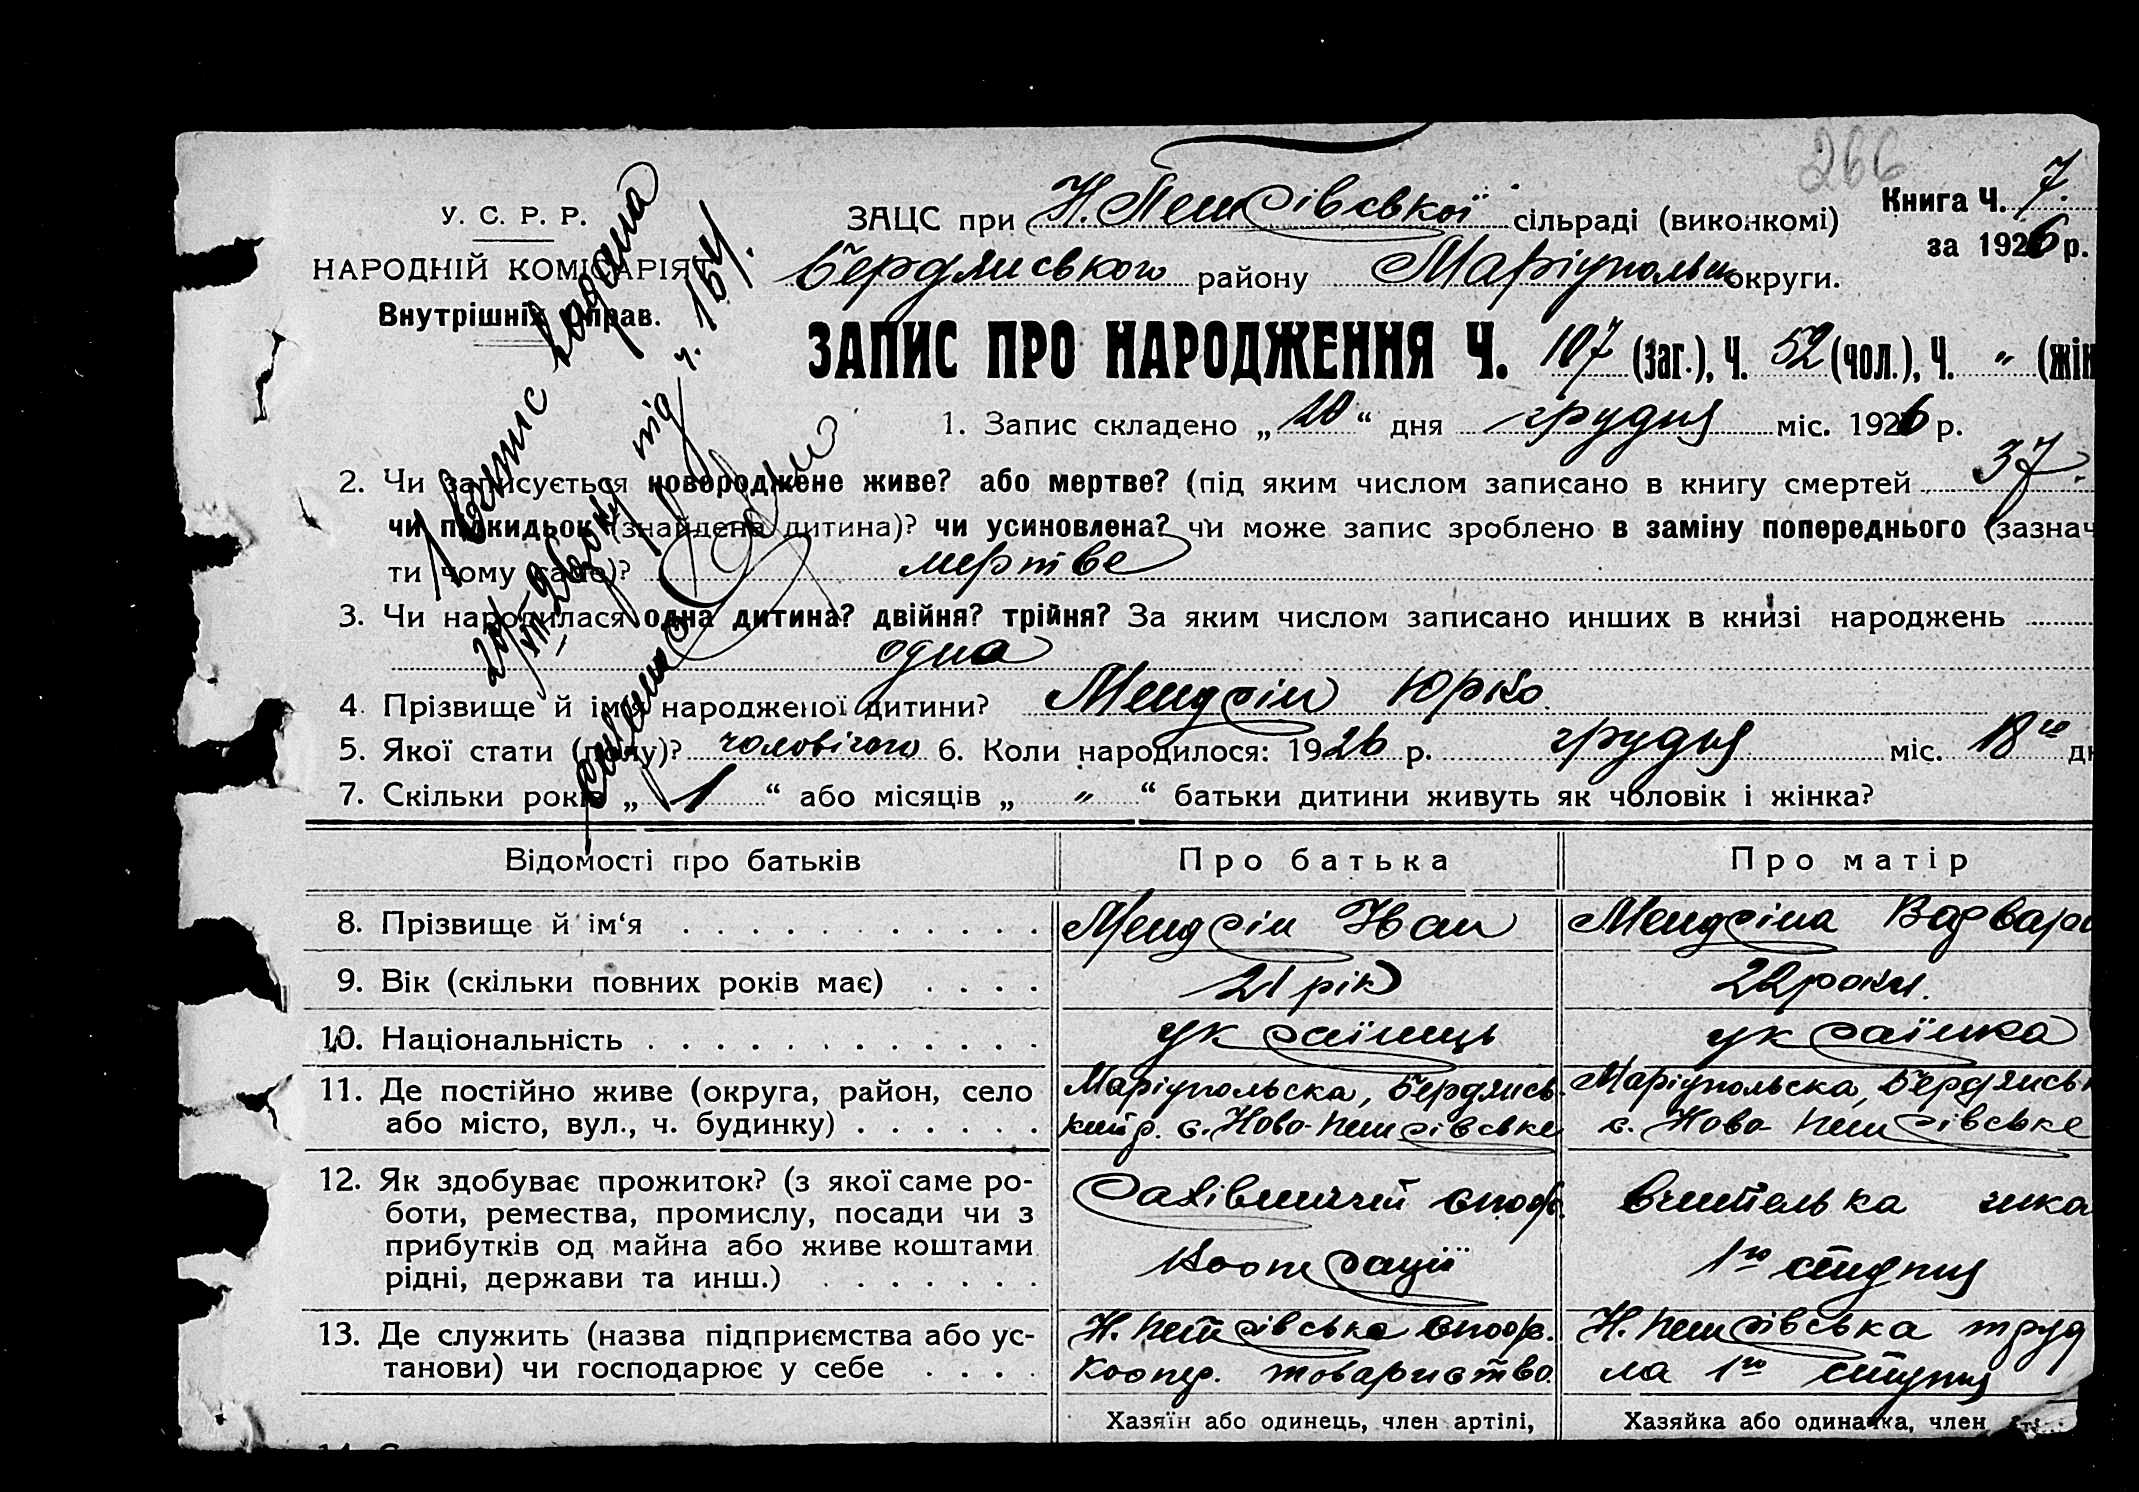 266
У. С. Р. Р.
НАРОДНІЙ КОМІСАРІЯТ
Внутрішніх Справ.
ЗАЦС при Н. Петрівської сільраді (виконкомі)
Книга Ч. 7.
за 1926 р.
Бердянського району Маріупольськ округи.
ЗАПИС ПРО НАРОДЖЕННЯ Ч. 107 (заг.), Ч. 52 (чол.), Ч. " (жін
1. Запис складено „20“ дня грудня міс. 1926 р.
2. Чи записується новороджене живе? або мертве? (під яким числом записано в книгу смертей 37.
чи підкидьок (знайдена дитина)? чи усиновлена? чи може запис зроблено в заміну попереднього (зазнач
ти чому саме)? мертве
3. Чи народилася одна дитина? двійня? трійня? За яким числом записано инших в книзі народжень
одна
4. Прізвище й імя народженої дитини? Мендрін Юрко.
5. Якої стати (полу)? чоловічого 6. Коли народилося: 1926 р. грудня міс. 18го дн
7. Скільки років „1“ або місяців „"“ батьки дитини живуть як чоловік і жінка?
Відомості про батьків Про батька Про матір
8. Прізвище й ім‘я Мендрін Іван Мендріна Варвара
9. Вік (скільки повних років має) 21 рік 22 роки.
10. Національність українець українка
11. Де постійно живе (округа, район, село Маріупольска, Бердянсь- Маріупольска, Бердянськ
або місто, вул., ч. будинку) кий р. с. Ново-Петрівське с. Ново-Петрівське
12. Як здобуває прожиток? (з якої саме ро-
боти, ремества, промислу, посади чи з Рахівничий спож. вчителька шко
прибутків од майна або живе коштами
рідні, держави та инш.) Кооперації 1го ступня
13. Де служить (назва підприємства або ус- Н. Петрівське спож. Н. Петрівська труд
танови) чи господарює у себе коопер. товариство. ла 1го ступня
Хазяїн або одинець, член артілі, Хазяйка або одиначка, член
1 витис
під ч. 164.